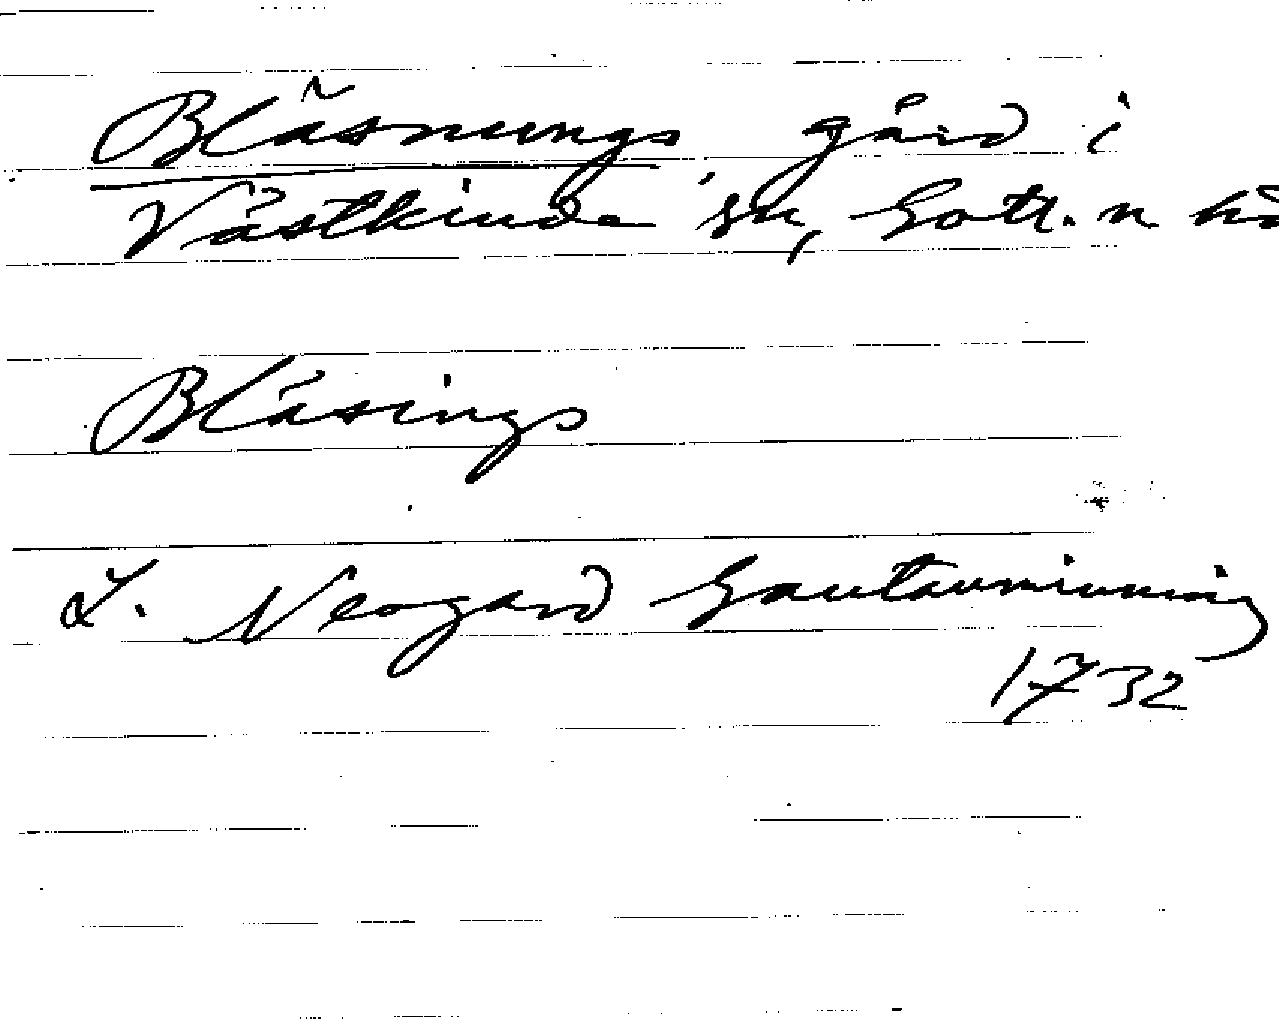 Bläsnungs gård i
Västkinde sn, Gotl. n hä
Bläsings
L. Neogard Gautauminning
1732